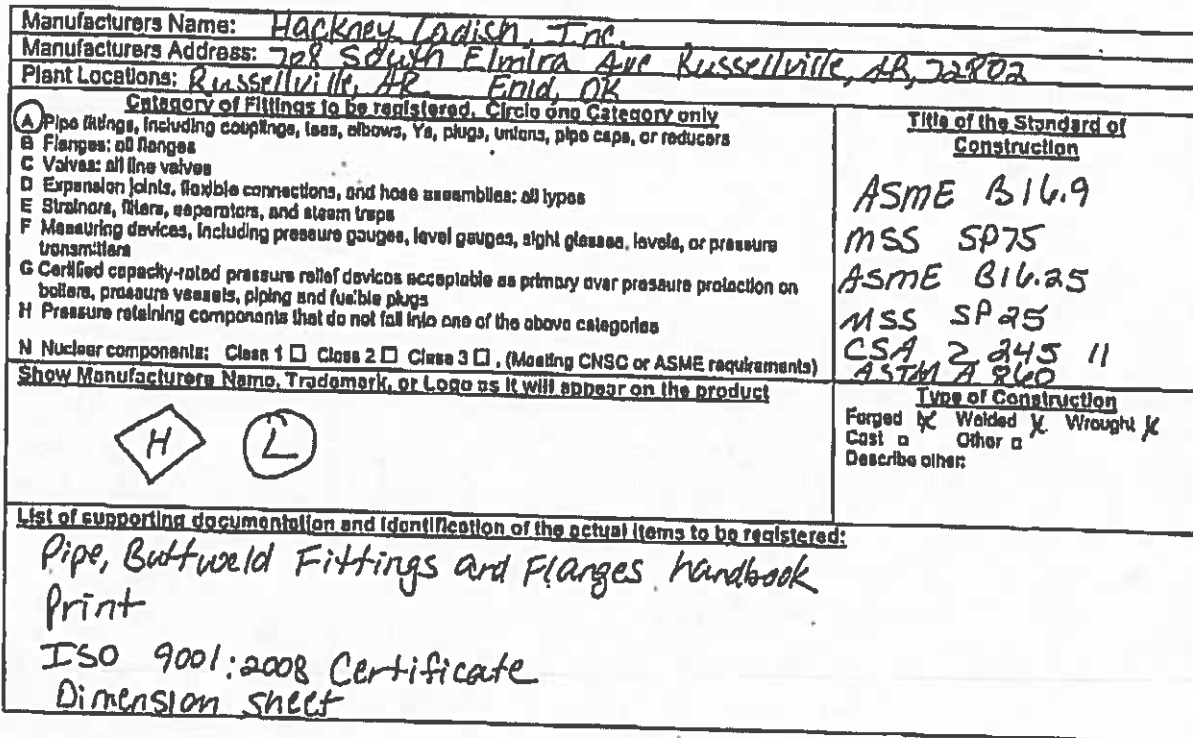 Manufacturers Name: Hackney Ladish, Inc.
Manufacturers Address: 708 South Elmira Ave Russellville, AR, 72802
Plant Locations: Russellville, AR Enid, OK
Category of Fittings to be registered. Circle one Category only
A Pipe fittings, including couplings, tees, elbows, Ys, plugs, unions, pipe caps, or reducers
B Flanges: all flanges
C Valves: all line valves
D Expansion joints, flexible connections, and hose assemblies: all types
E Strainers, filters, separators, and steam traps
F Measuring devices, including pressure gauges, level gauges, sight glasses, levels, or pressure
transmitters
G Certified capacity-rated pressure relief devices acceptable as primary over pressure protection on
boilers, pressure vessels, piping and fusible plugs
H Pressure retaining components that do not fall into one of the above categories
N Nuclear components: Class 1 □ Class 2 □ Class 3 □ , (Meeting CNSC or ASME requirements)
Title of the Standard of
Construction
ASME B16.9
MSS SP75
ASME B16.25
MSS SP25
CSA Z 245 11
ASTM A 860
Show Manufacturers Name, Trademark, or Logo as it will appear on the product
H L
Type of Construction
Forged X Welded X Wrought X
Cast □ Other □
Describe other:
List of supporting documentation and identification of the actual items to be registered:
Pipe, Buttweld Fittings and Flanges handbook
Print
ISO 9001:2008 Certificate
Dimension sheet